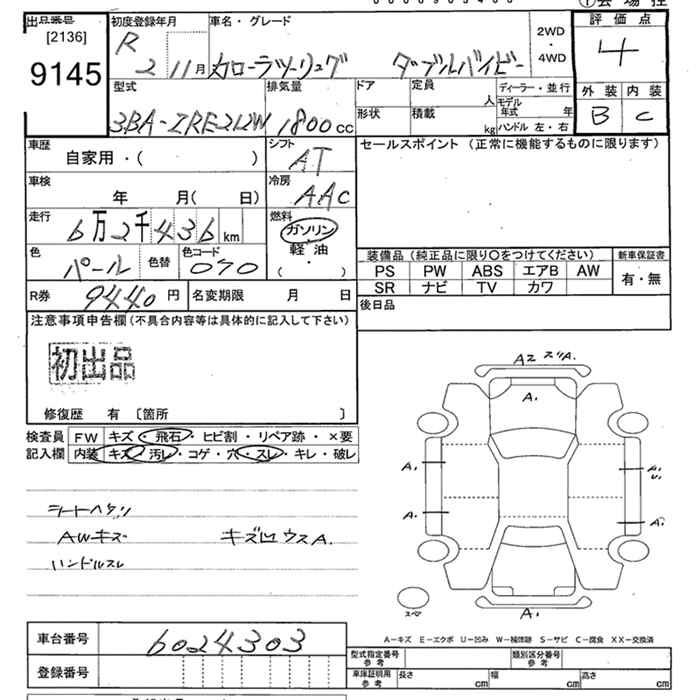 ①会場控
出品番号 [2136]
9145
初度登録年月 R 2 11月
車名・グレード カローラツーリング ダブルバイビー
2WD ・ 4WD
評価点 4
外装 内装
B C
型式 3BA-ZRE212W
排気量 1800cc
ドア 定員 人
形状 積載 kg
ディーラー・並行
モデル年式 年
ハンドル 左・右
車歴 自家用・( )
シフト AT
セールスポイント (正常に機能するものに限ります)
車検 年 月( 日)
冷房 AAC
走行 6万2千436km
燃料 ガソリン・軽油 ( )
色 パール 色替 色コード 070
装備品 (純正品に限り〇をつけてください) 新車保証書
PS PW ABS エアB AW 有・無
SR ナビ TV カワ
R券 9440円 名変期限 月 日
後日品
注意事項申告欄 (不具合内容等は具体的に記入して下さい)
初出品
修復歴 有 〔箇所 〕
検査員 FW キズ・飛石・ヒビ割・リペア跡・×要
記入欄 内装 キズ・汚レ・コゲ・穴・スレ・キレ・破レ
シートヘタリ
AWキズ キズ凹ウスA.
ハンドルスレ
A2 スリA.
A.
A. A. U.
A. A.
スペ A.
A-キズ E-エクボ U-凹み W-補修跡 S-サビ C-腐食 XX-交換済
車台番号 6024303
型式指定番号 参考 類別区分番号 参考
登録番号
車庫証明用 参考 長さ cm 幅 cm 高さ cm